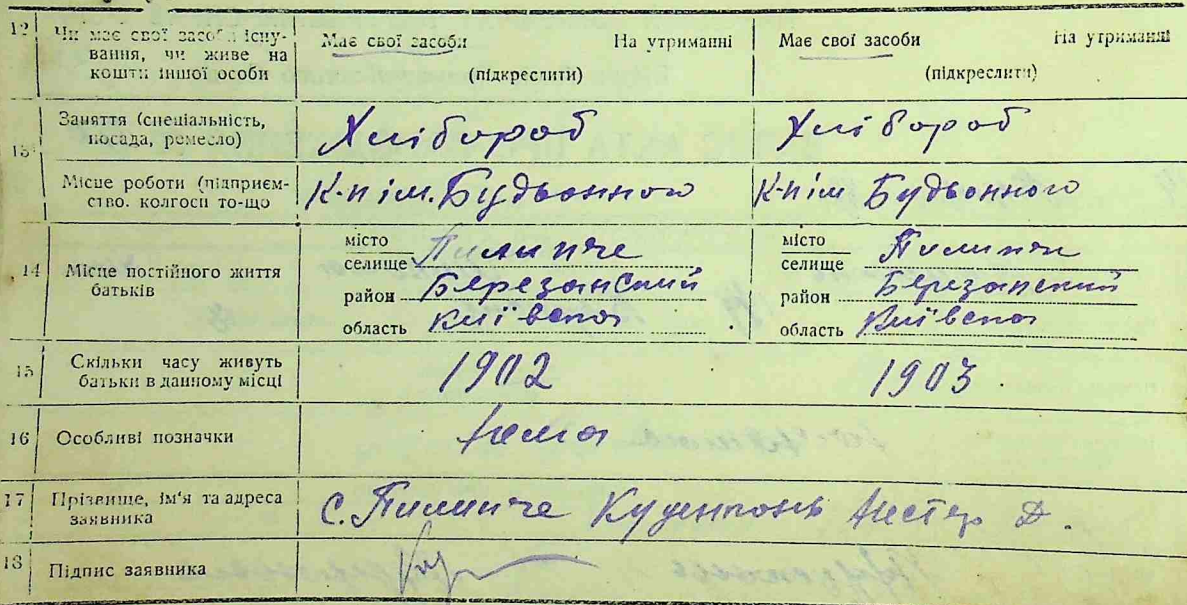 12 Чи має свої засоби існу-
вання, чи живе на
кошти іншої особи
Має свої засоби На утриманні
(підкреслити)
Має свої засоби На утриманні
(підкреслити)
13 Заняття (спеціальність,
посада, ремесло)
Хлібороб
Хлібороб
Місце роботи (підприєм-
ство. колгосп то-що
К-п ім. Будьонного
К-п ім Будьонного
14 Місце постійного життя
батьків
місто
селище Пилипче
район Березанский
область Київська
місто
селище Пилипче
район Березанский
область Київська
15 Скільки часу живуть
батьки в данному місці
1902
1903
16 Особливі позначки
Нема
17 Прізвище, ім'я та адреса
заявника
с. Пилипче Нестер Д.
18 Підпис заявника